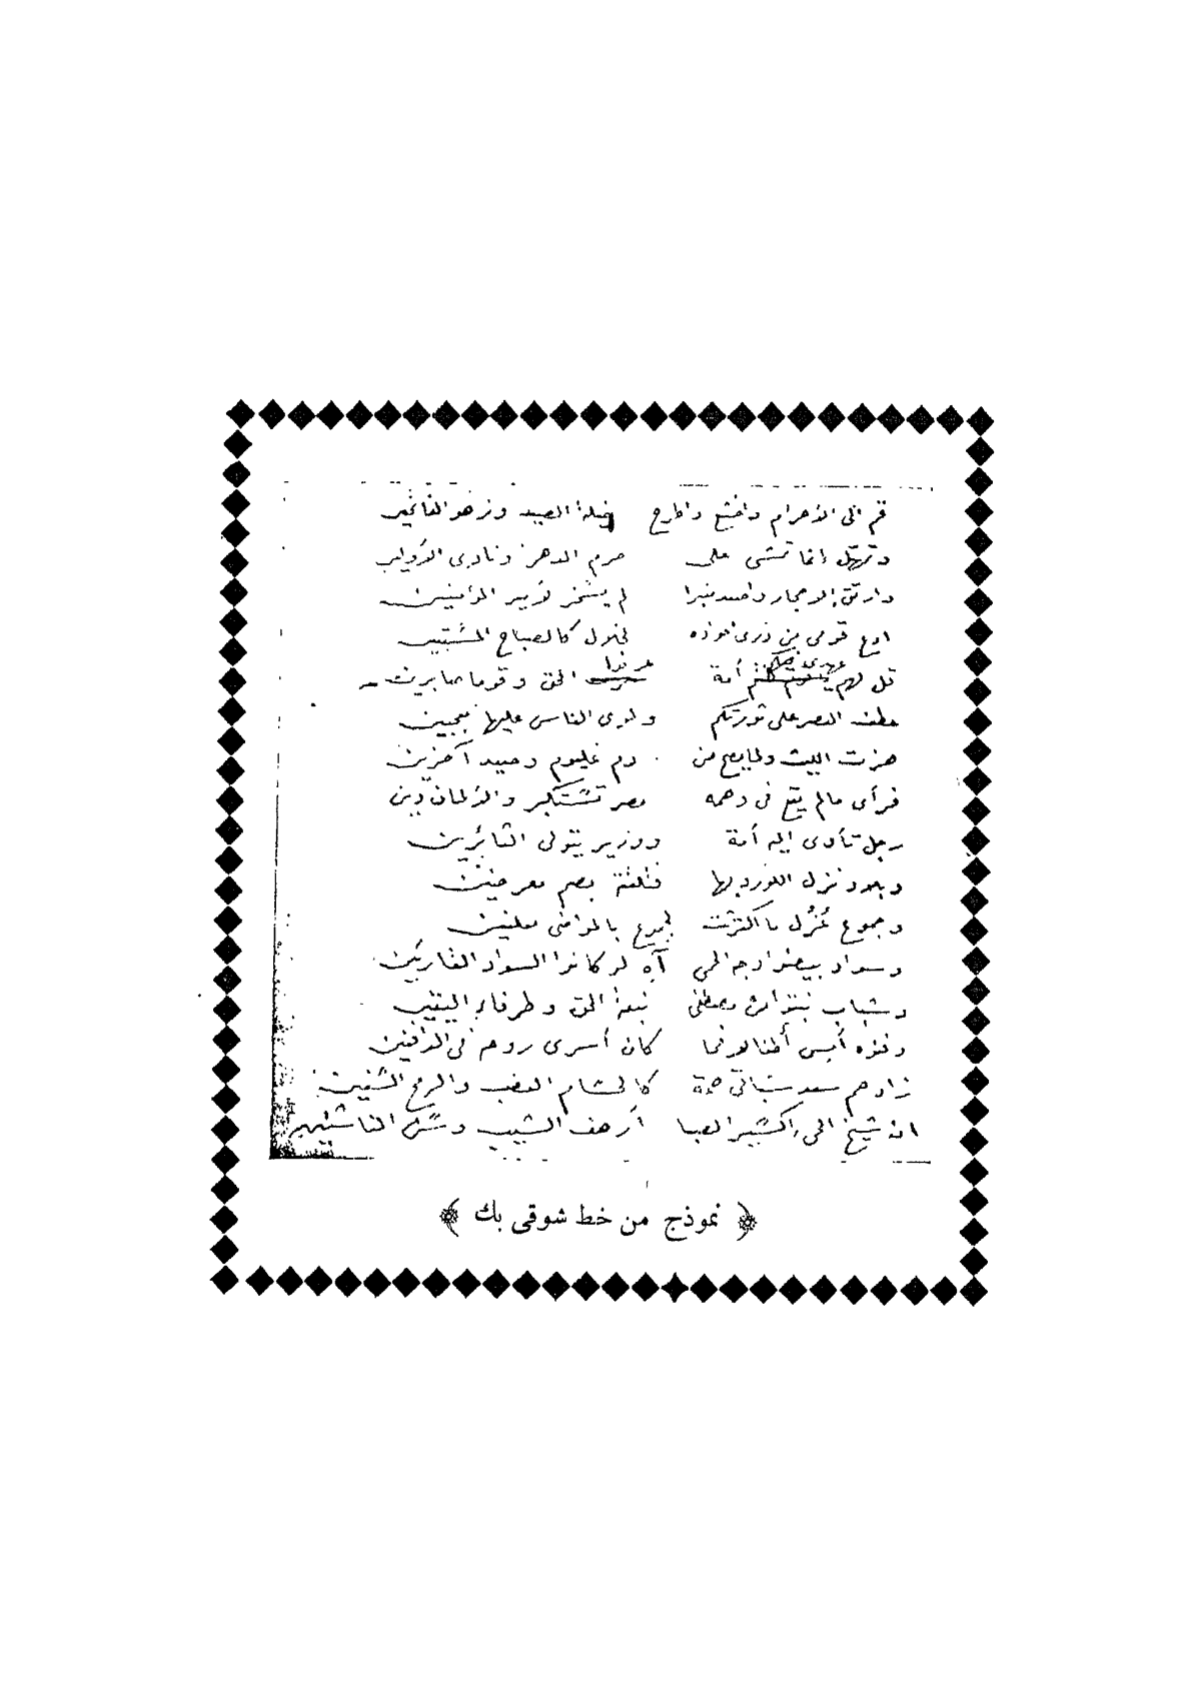 قم الى الأهرام واخشع واطرح خيلة الصيد وزهو الفاتحين
وتمهل إنما تمشى على حرم الدهر ونادى الأولين
وارتق الاحجار واصعد منبرا لم يسخر لأمير المؤمنين
ادع قومى من ذرى اعواده لنضال كالصباح المستبين
قل لهم أمة عرفوا الحق وقوما صابرين
عطف النصر على ثورتكم ولوى الناس عليها معجبين
هزت الليث ولما يصح من دم غليوم وصيد آخرين
فرأى مالم يقع فى وهمه مصر تستكبر والألمان دين
رجل تأوى اليه أمة ووزير يتولى الثائرين
وبلاد نزل اللورد بها فتلقته بصم معرضين
وجموع عُزُل ما اكترثت لجموع بالمواضى معلمين
وسواد بيضوا وجه الحمى آه لو كانوا السواد القارئين
وشباب نبتوا من مصطفى نبعة الحق وطرفاء اليقين
وغزه أمس أطفالا فما كان أسرى روحه فى الدافنين
زادهم سعد شباتى همة كالحسام العضب والرمح السنين
ان شيخ الحى إكسير الصبا أرهف الشيب وسن الناشئين
نموذج من خط شوقى بك